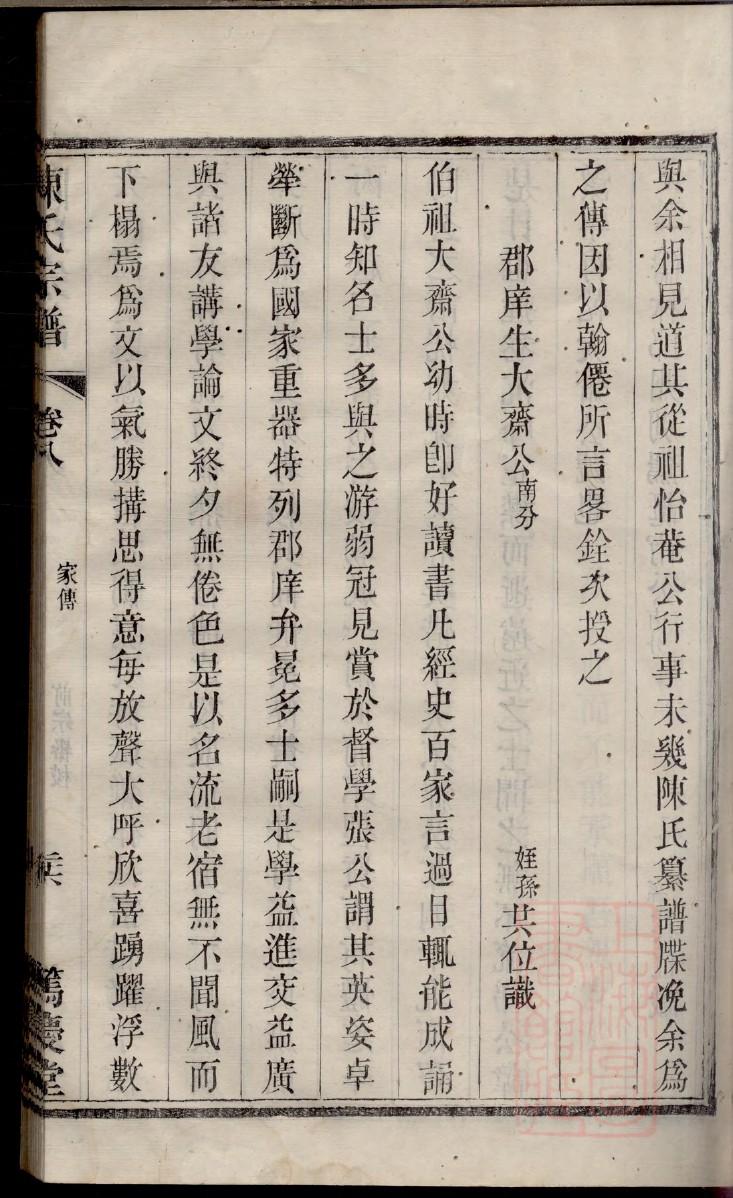 與余相見道其從祖怡菴公行事未幾陳氏纂譜牒浼余為
之傳因以翰僊所言畧銓次授之
郡庠生大齋公南分 姪孫共位識
伯祖大齋公幼時卽好讀書凡經史百家言過目輒能成誦
一時知名士多與之游弱冠見賞於督學張公謂其英姿卓
犖斷爲國家重器特列郡庠弁冕多士嗣是學益進交益廣
與諸友講學論文終夕無倦色是以名流老宿無不聞風而
下榻焉爲文以氣勝搆思得意每放聲大呼欣喜踴躍浮數
陳氏宗譜 卷八 家傳 篤慶堂